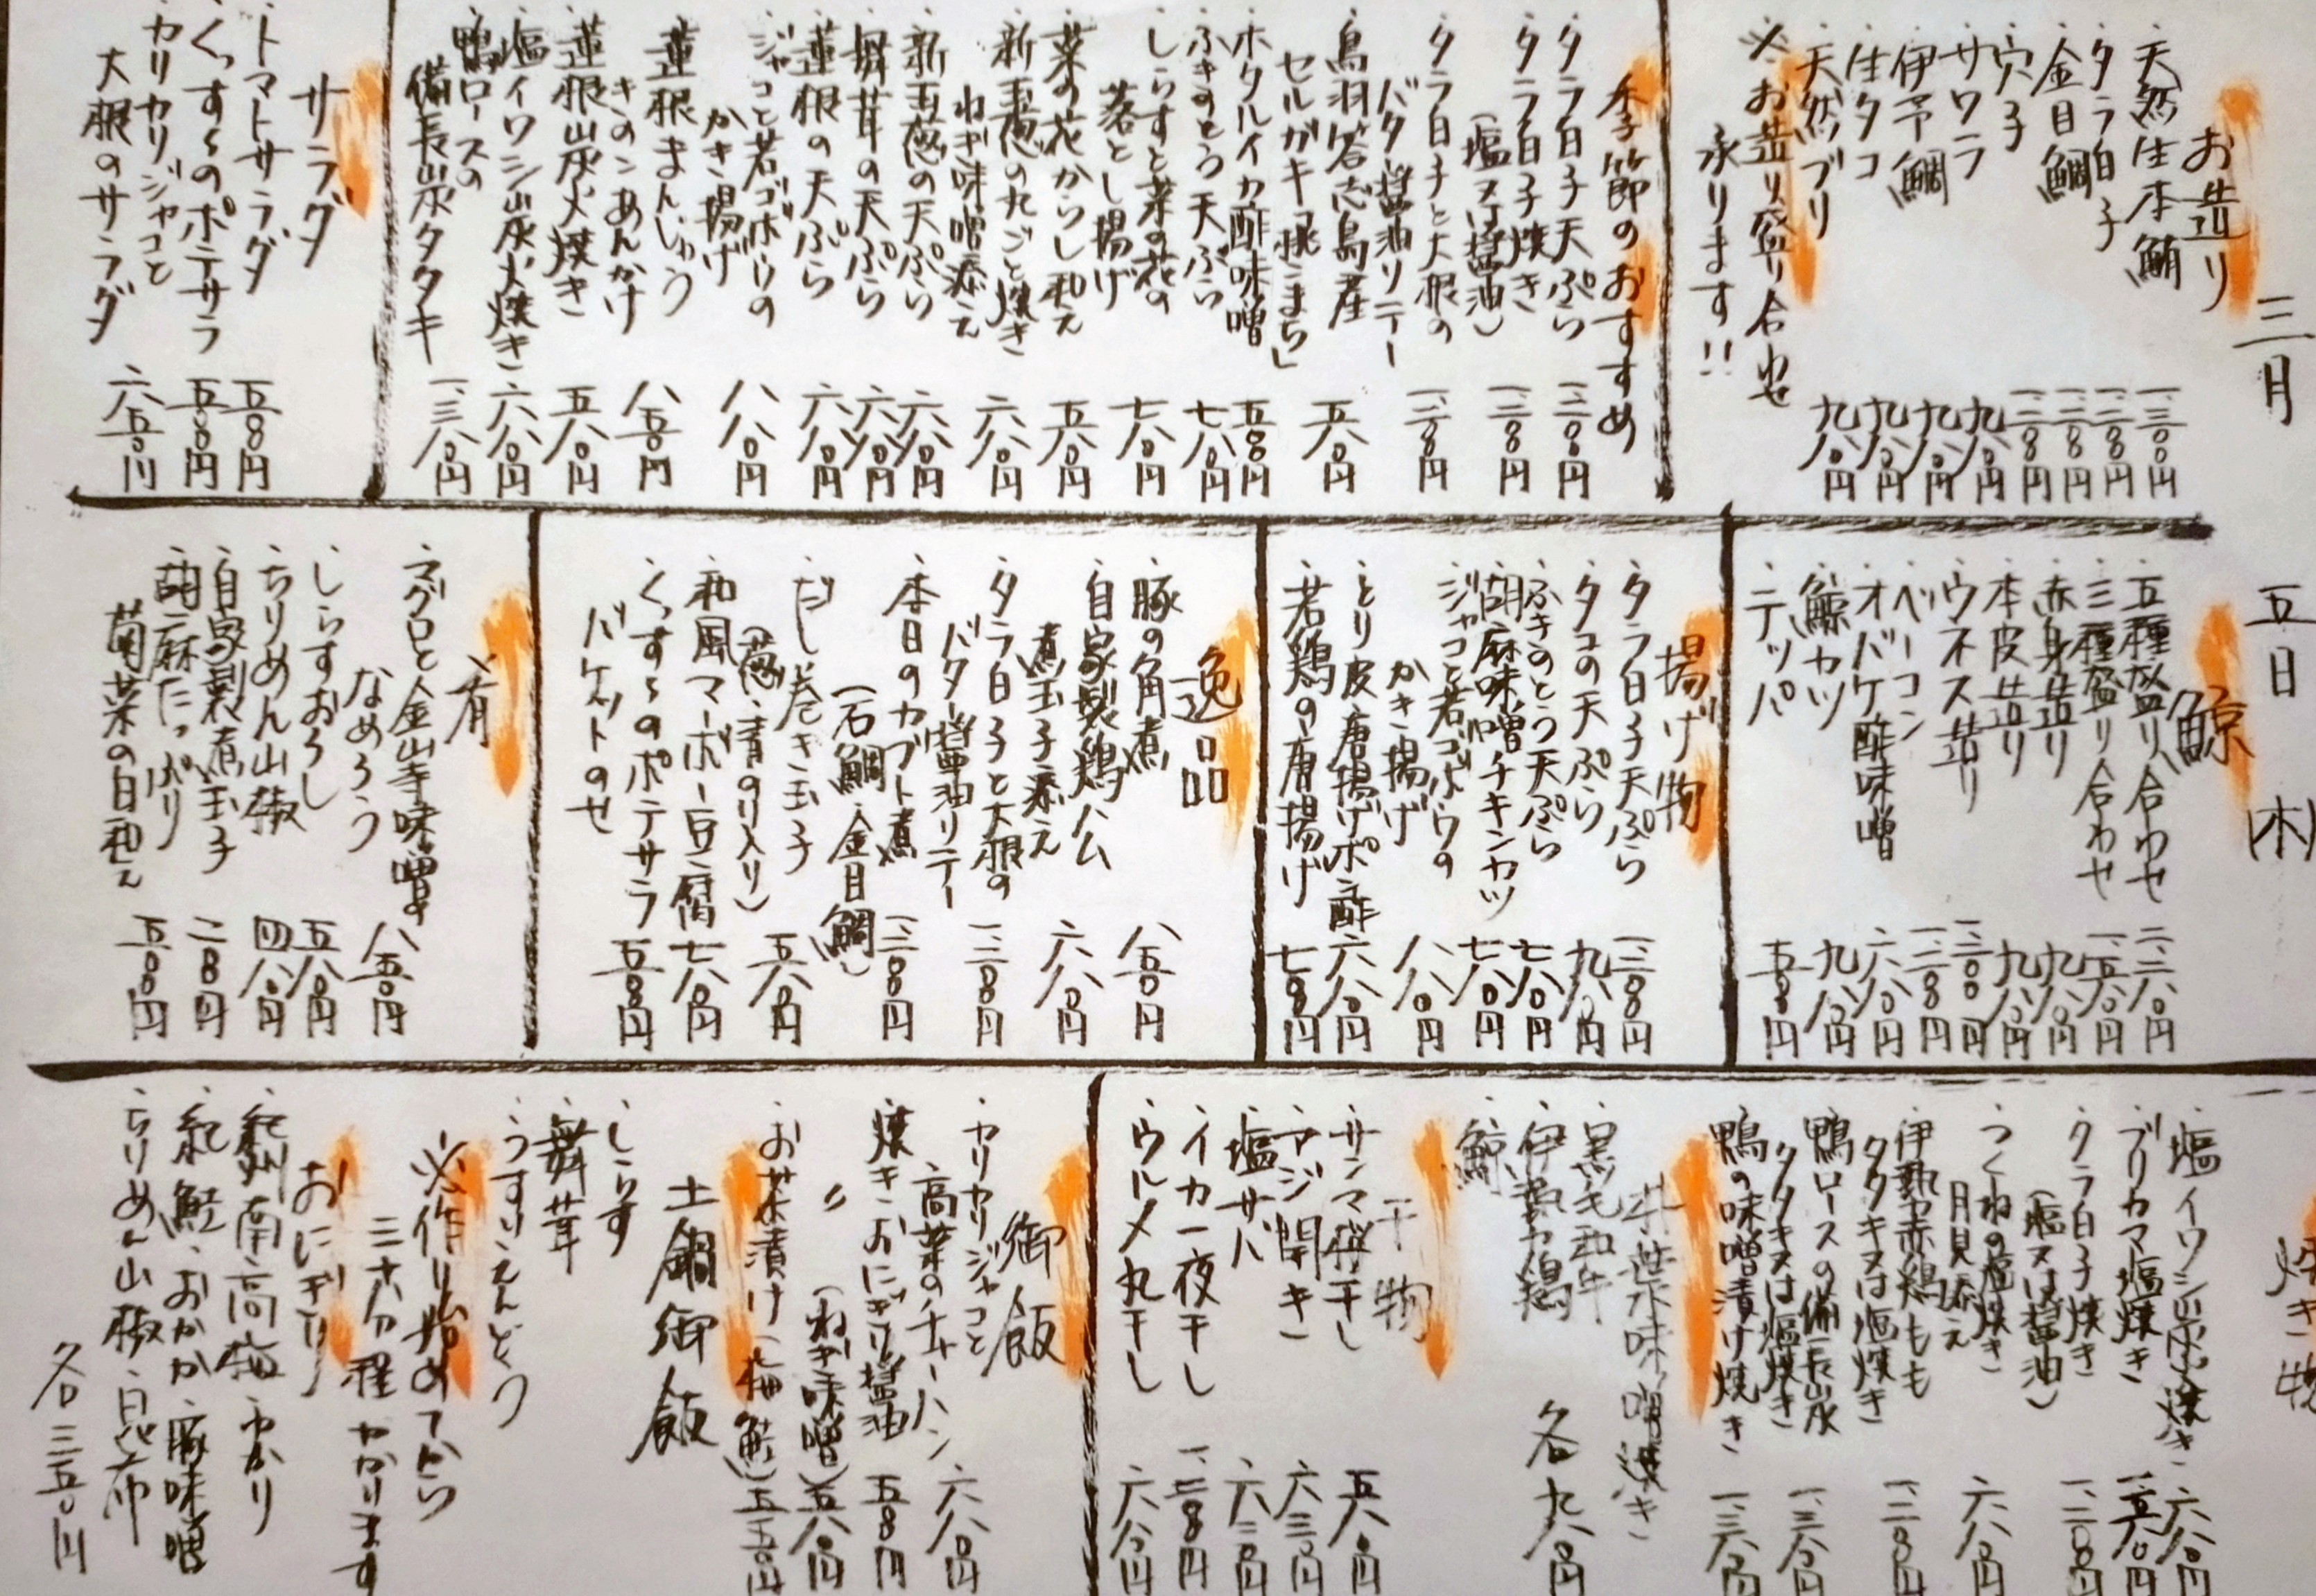 三月 五日 (木)
お造り
・天然生本鮪 一、三〇〇円
・タラ白子 一、二〇〇円
・金目鯛 一、二〇〇円
・穴子 一、二〇〇円
・サワラ 九八〇円
・伊予鯛 九八〇円
・生タコ 九八〇円
・天然ブリ 九八〇円
※お造り盛り合わせ
承ります!!
季節のおすすめ
・タラ白子天ぷら 一、二〇〇円
・タラ白子焼き
(塩又は醤油) 一、二〇〇円
・タラ白子と大根の
バター醤油ソテー 一、二〇〇円
・鳥羽答志島産
セルガキ「桃こまち」 五八〇円
・ホタルイカ酢味噌 五八〇円
・ふきのとう天ぷら 七八〇円
・しらすと菜の花の
落とし揚げ 七八〇円
・菜の花からし和え 五八〇円
・新玉葱の丸ごと焼き
ねぎ味噌添え 六八〇円
・新玉葱の天ぷら 六八〇円
・舞茸の天ぷら 六八〇円
・蓮根の天ぷら 六八〇円
・ジャコと若ゴボウの
かき揚げ 八八〇円
・蓮根まんじゅう
きのこあんかけ 八五〇円
・蓮根炭火焼き 五八〇円
・塩イワシ炭火焼き 六八〇円
・鴨ロースの
備長炭タタキ 一、三八〇円
サラダ
・トマトサラダ 五〇〇円
・くっすぅのポテサラ 五〇〇円
・カリカリジャコと
大根のサラダ 六五〇円
鯨
・五種盛り合わせ 二、二八〇円
・三種盛り合わせ 一、五八〇円
・赤身造り 九八〇円
・本皮造り 九八〇円
・ウネス造り 一、二〇〇円
・ベーコン 一、二〇〇円
・オバケ酢味噌 六八〇円
・鯨カツ 九八〇円
・テッパ 五〇〇円
揚げ物
・タラ白子天ぷら 一、二〇〇円
・タコの天ぷら 九八〇円
・ふきのとう天ぷら 七八〇円
・胡麻味噌チキンカツ 七八〇円
・ジャコと若ゴボウの
かき揚げ 八八〇円
・とり皮唐揚げポン酢 六八〇円
・若鶏の唐揚げ 七〇〇円
逸品
・豚の角煮 八五〇円
・自家製鶏ハム
煮玉子添え 六八〇円
・タラ白子と大根の
バター醤油ソテー 一、二〇〇円
・本日のカブト煮
(石鯛・金目鯛) 一、二〇〇円
・だし巻き玉子
(葱・青のり入り) 五八〇円
・和風マーボー豆腐 七八〇円
・くっすぅのポテサラ
バケットのせ 五〇〇円
肴
・マグロと金山寺味噌の
なめろう 八五〇円
・しらすおろし 五八〇円
・ちりめん山椒 四八〇円
・自家製煮玉子 二〇〇円
・胡麻たっぷり
菊菜の白和え 五〇〇円
焼き物
・塩イワシ炭火焼き 六八〇円
・ブリカマ塩焼き 一、五八〇円
・タラ白子焼き
(塩又は醤油) 一、二〇〇円
・つくねの塩焼き
月見添え 六八〇円
・伊勢赤鶏もも
タタキ又は塩焼き 一、二〇〇円
・鴨ロースの備長炭
タタキ又は塩焼き 一、三八〇円
・鴨の味噌漬け焼き 一、三八〇円
味噌焼き
・黒毛和牛
・伊勢赤鶏
・鯨
各九八〇円
干物
・サンマ丸干し 五八〇円
・アジ開き 六三〇円
・塩サバ 六三〇円
・イカ一夜干し 一、二〇〇円
・ウルメ丸干し 六八〇円
御飯
・カリカリジャコと
高菜のチャーハン 六八〇円
・焼きおにぎり醤油 五〇〇円
・〃 (ねぎ味噌) 五八〇円
・お茶漬け(梅・鮭) 五五〇円
土鍋御飯
・しらす
・舞茸
・うすいえんどう
※作り始めてから
三十分程かかります
おにぎり
・紀州南高梅・ゆかり
・紀鮭・おかか・豚味噌
・ちりめん山椒・昆布
各三五〇円